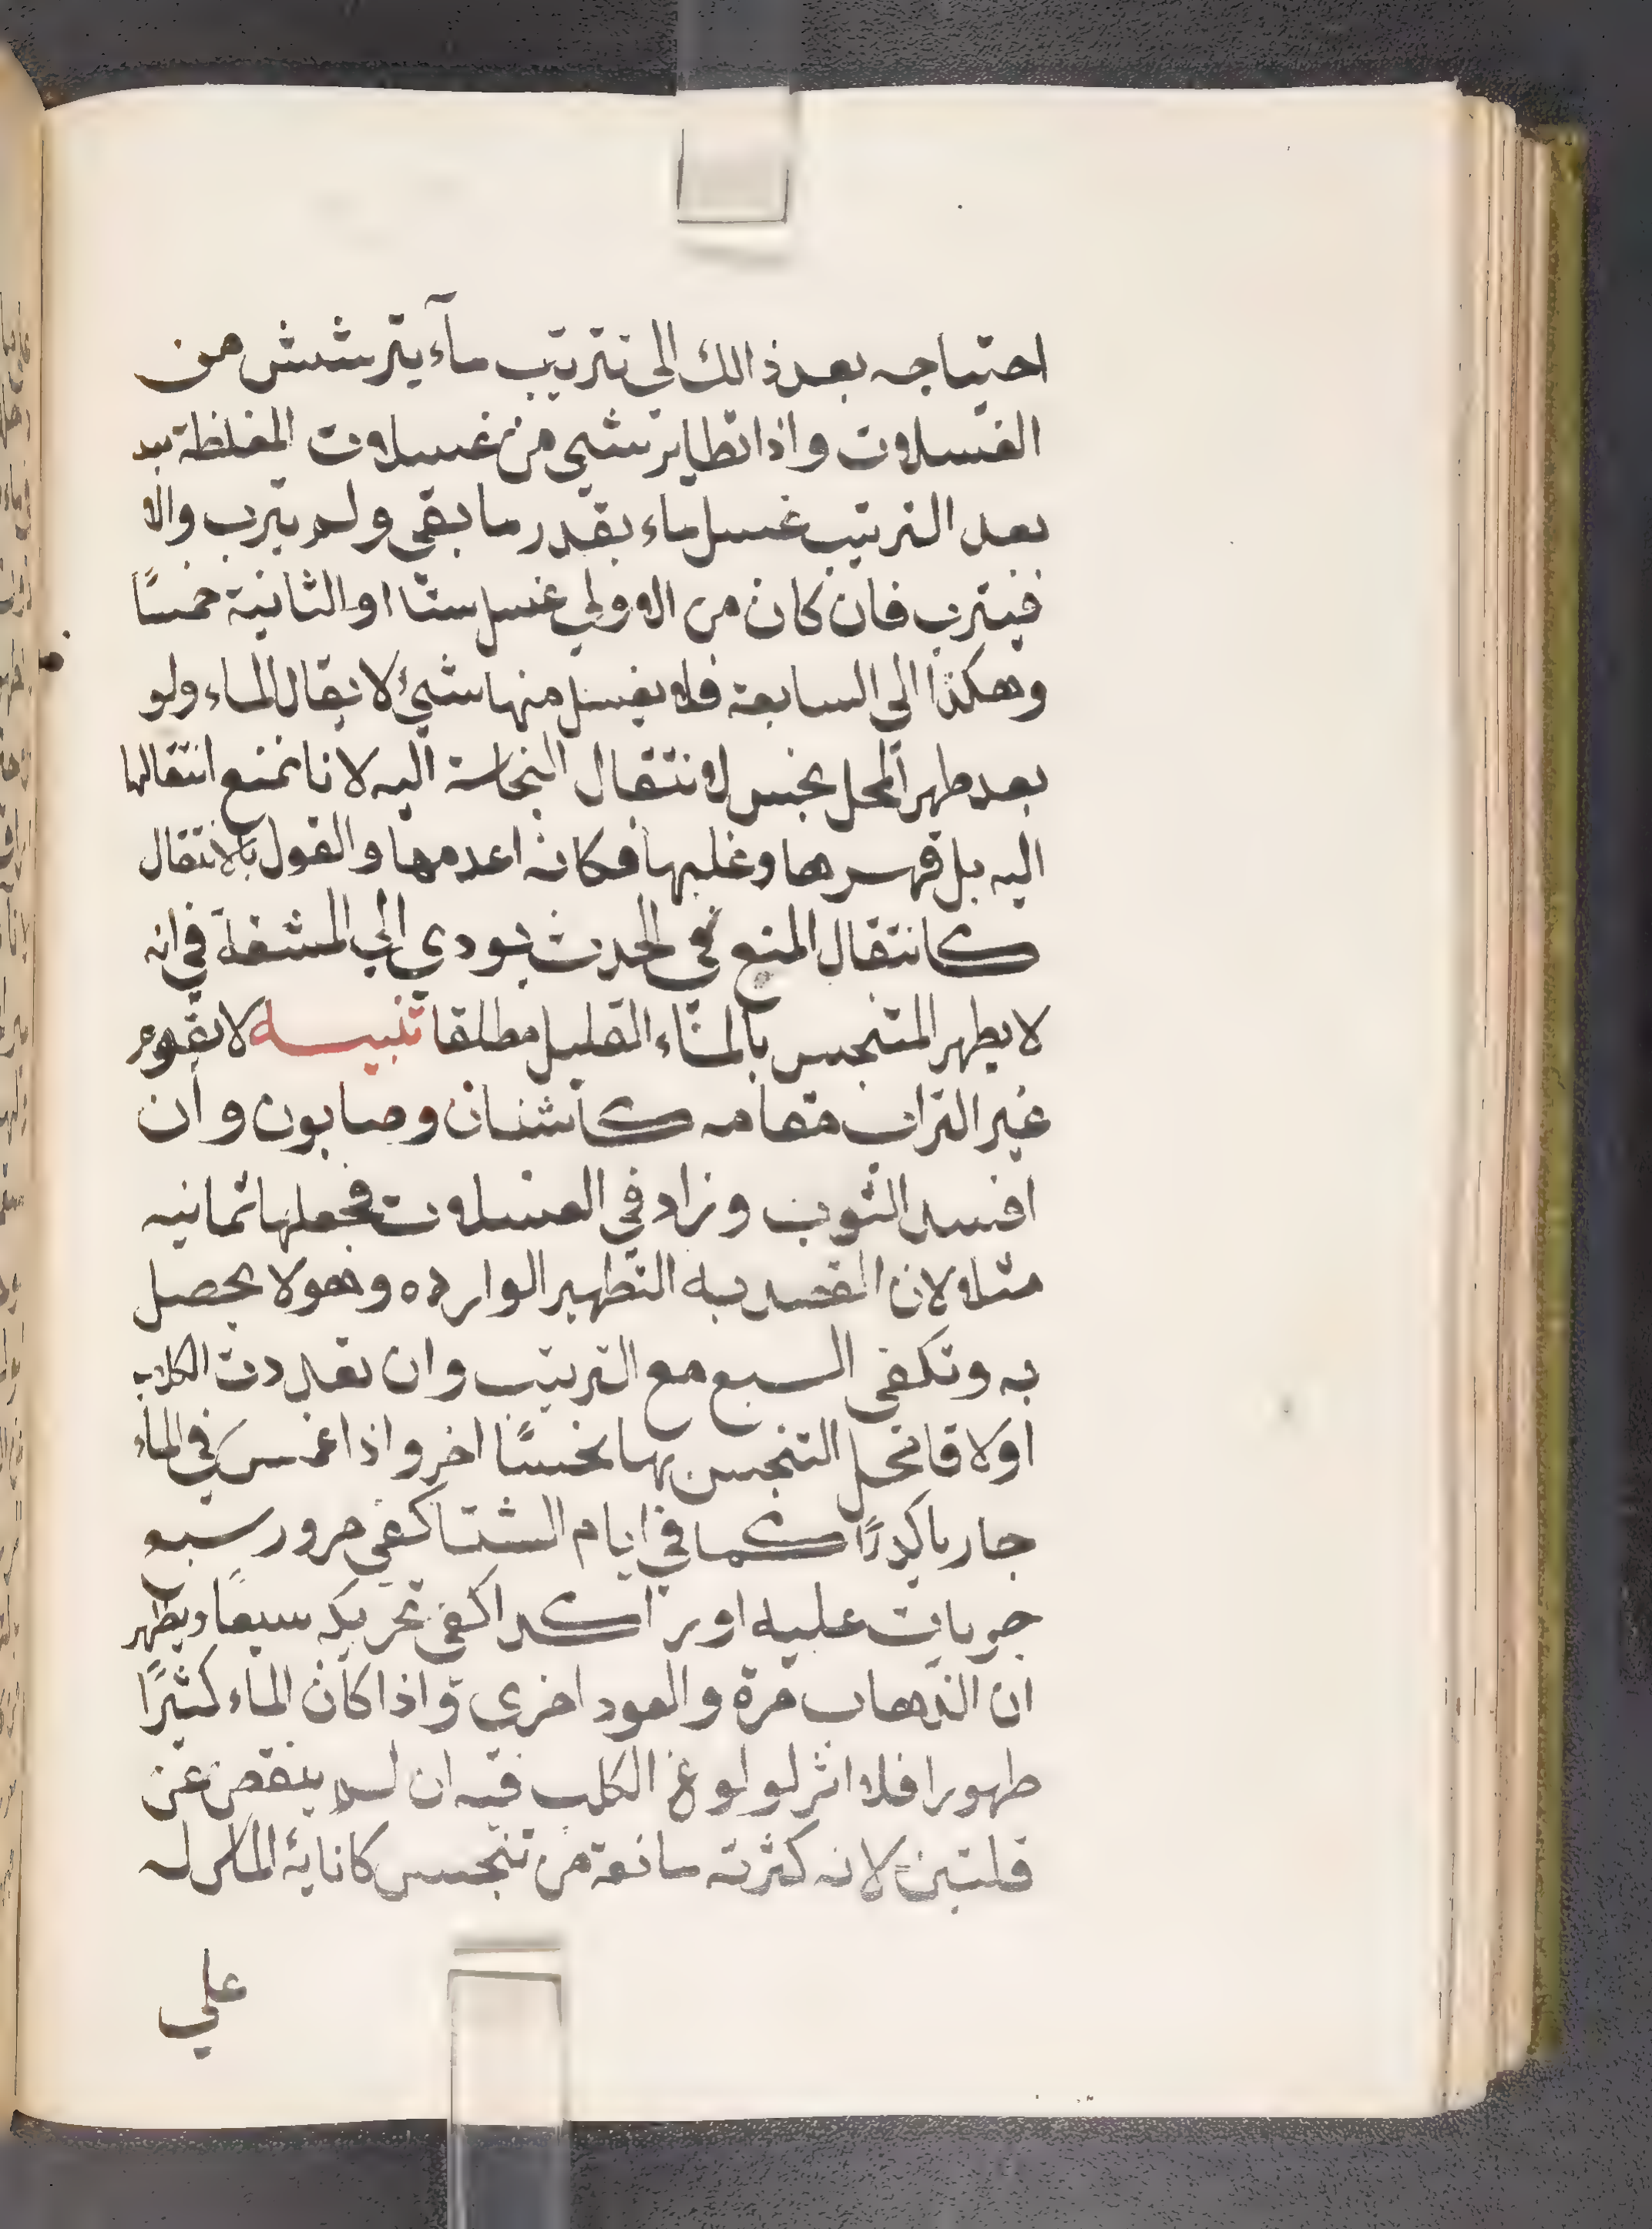 احتياجه بعد ذالك الى تتريب مآء يترشش من
الغسلات واذا تطاير شيء من غسلات المغلظة
بعد التريتيب غسل ماء بقدر ما بقى ولم يترب والا
فيترب فان كان من الاولى غسل ستا او الثانية خمسًا
وهكذا الى السابعة فلا يغسل منها شيئ لا يقال الماء ولو
بعد طهر المحل نجس لانتقال النجاسة اليه لانا نمنع انتقالها
اليه بل قهرها وغلبها فكانه اعدمها والقول بالانتقال
كانتقال المنع في الحدث يودي الى المشقة في انه
لا يطهر المتنجس بالماء القليل مطلقا تنبيه لا يقوم
غير التراب مقامه كاشنان وصابون وان
افسد الثوب وزاد في الغسلات فجعلها ثمانيه
مثلا لان القصد به التطهير الوارده وهو لا يحصل
به وتكفى السبع مع التريتيب وان تعددت الكلاب
اولاقا محل التنجس بها نجسًا اخر واذا غمس في الماء
جاريا كدرًا كما في ايام الشتا كفى مرور سبع
جريات عليه او راكدا كفى تحريكه سبعا ويظهر
ان الذهاب مرة والعود اخرى واذا كان الماء كثيرًا
طهورا فلا اثر لولوغ الكلب فيه ان لم ينقص عن
قلتين لانه كثرته مانعة من تنجس كانايه
علي